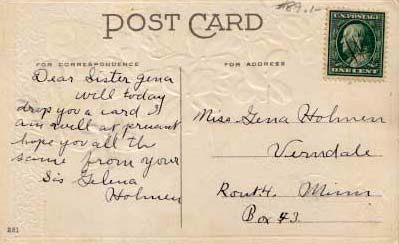 #89.1-
POST CARD
U.S. POSTAGE
ONE CENT
FOR CORRESPONDENCE
FOR ADDRESS
Dear Sister gena
will today
drop you a card I
am well at presant
hope you all the
same from your
Sis Selena
Holmen
Miss Gena Holmen
Verndale
Rout 4. Minn
Box 43.
221